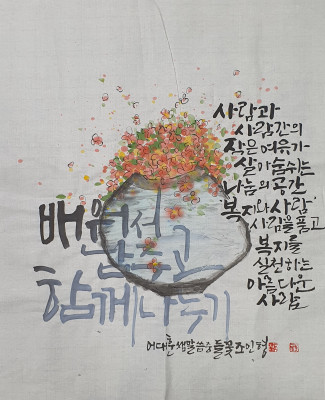 사람과
사람간의
작은 여유가
살아숨쉬는
나눔의 공간
'복지와 사람'
사람을 품고
복지를
실천하는
아름다운
사람
배워서
남주고
함께나누기
어대훈쌤말씀중 들꽃조인형